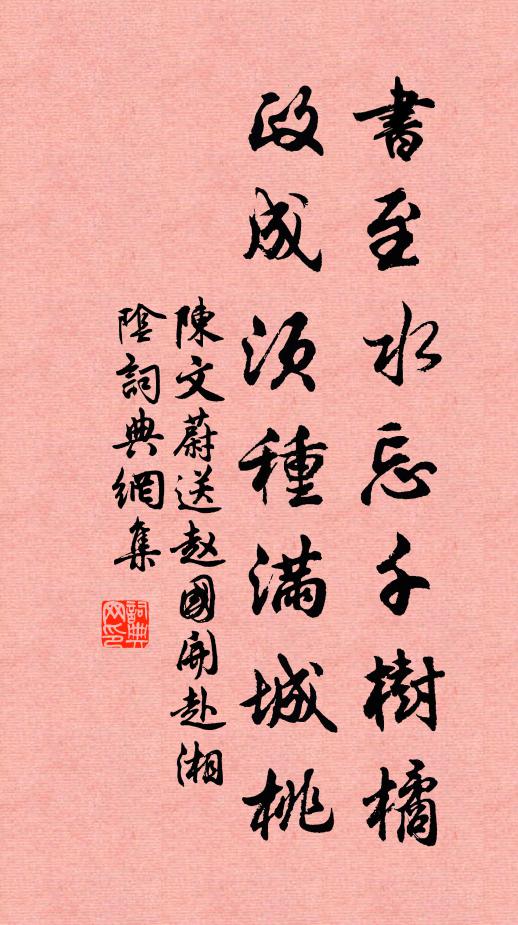 書至水忘千樹橘
政成須種滿城桃
陳文蔚送赵國開赴湘
陰詞典網集
詞典网印